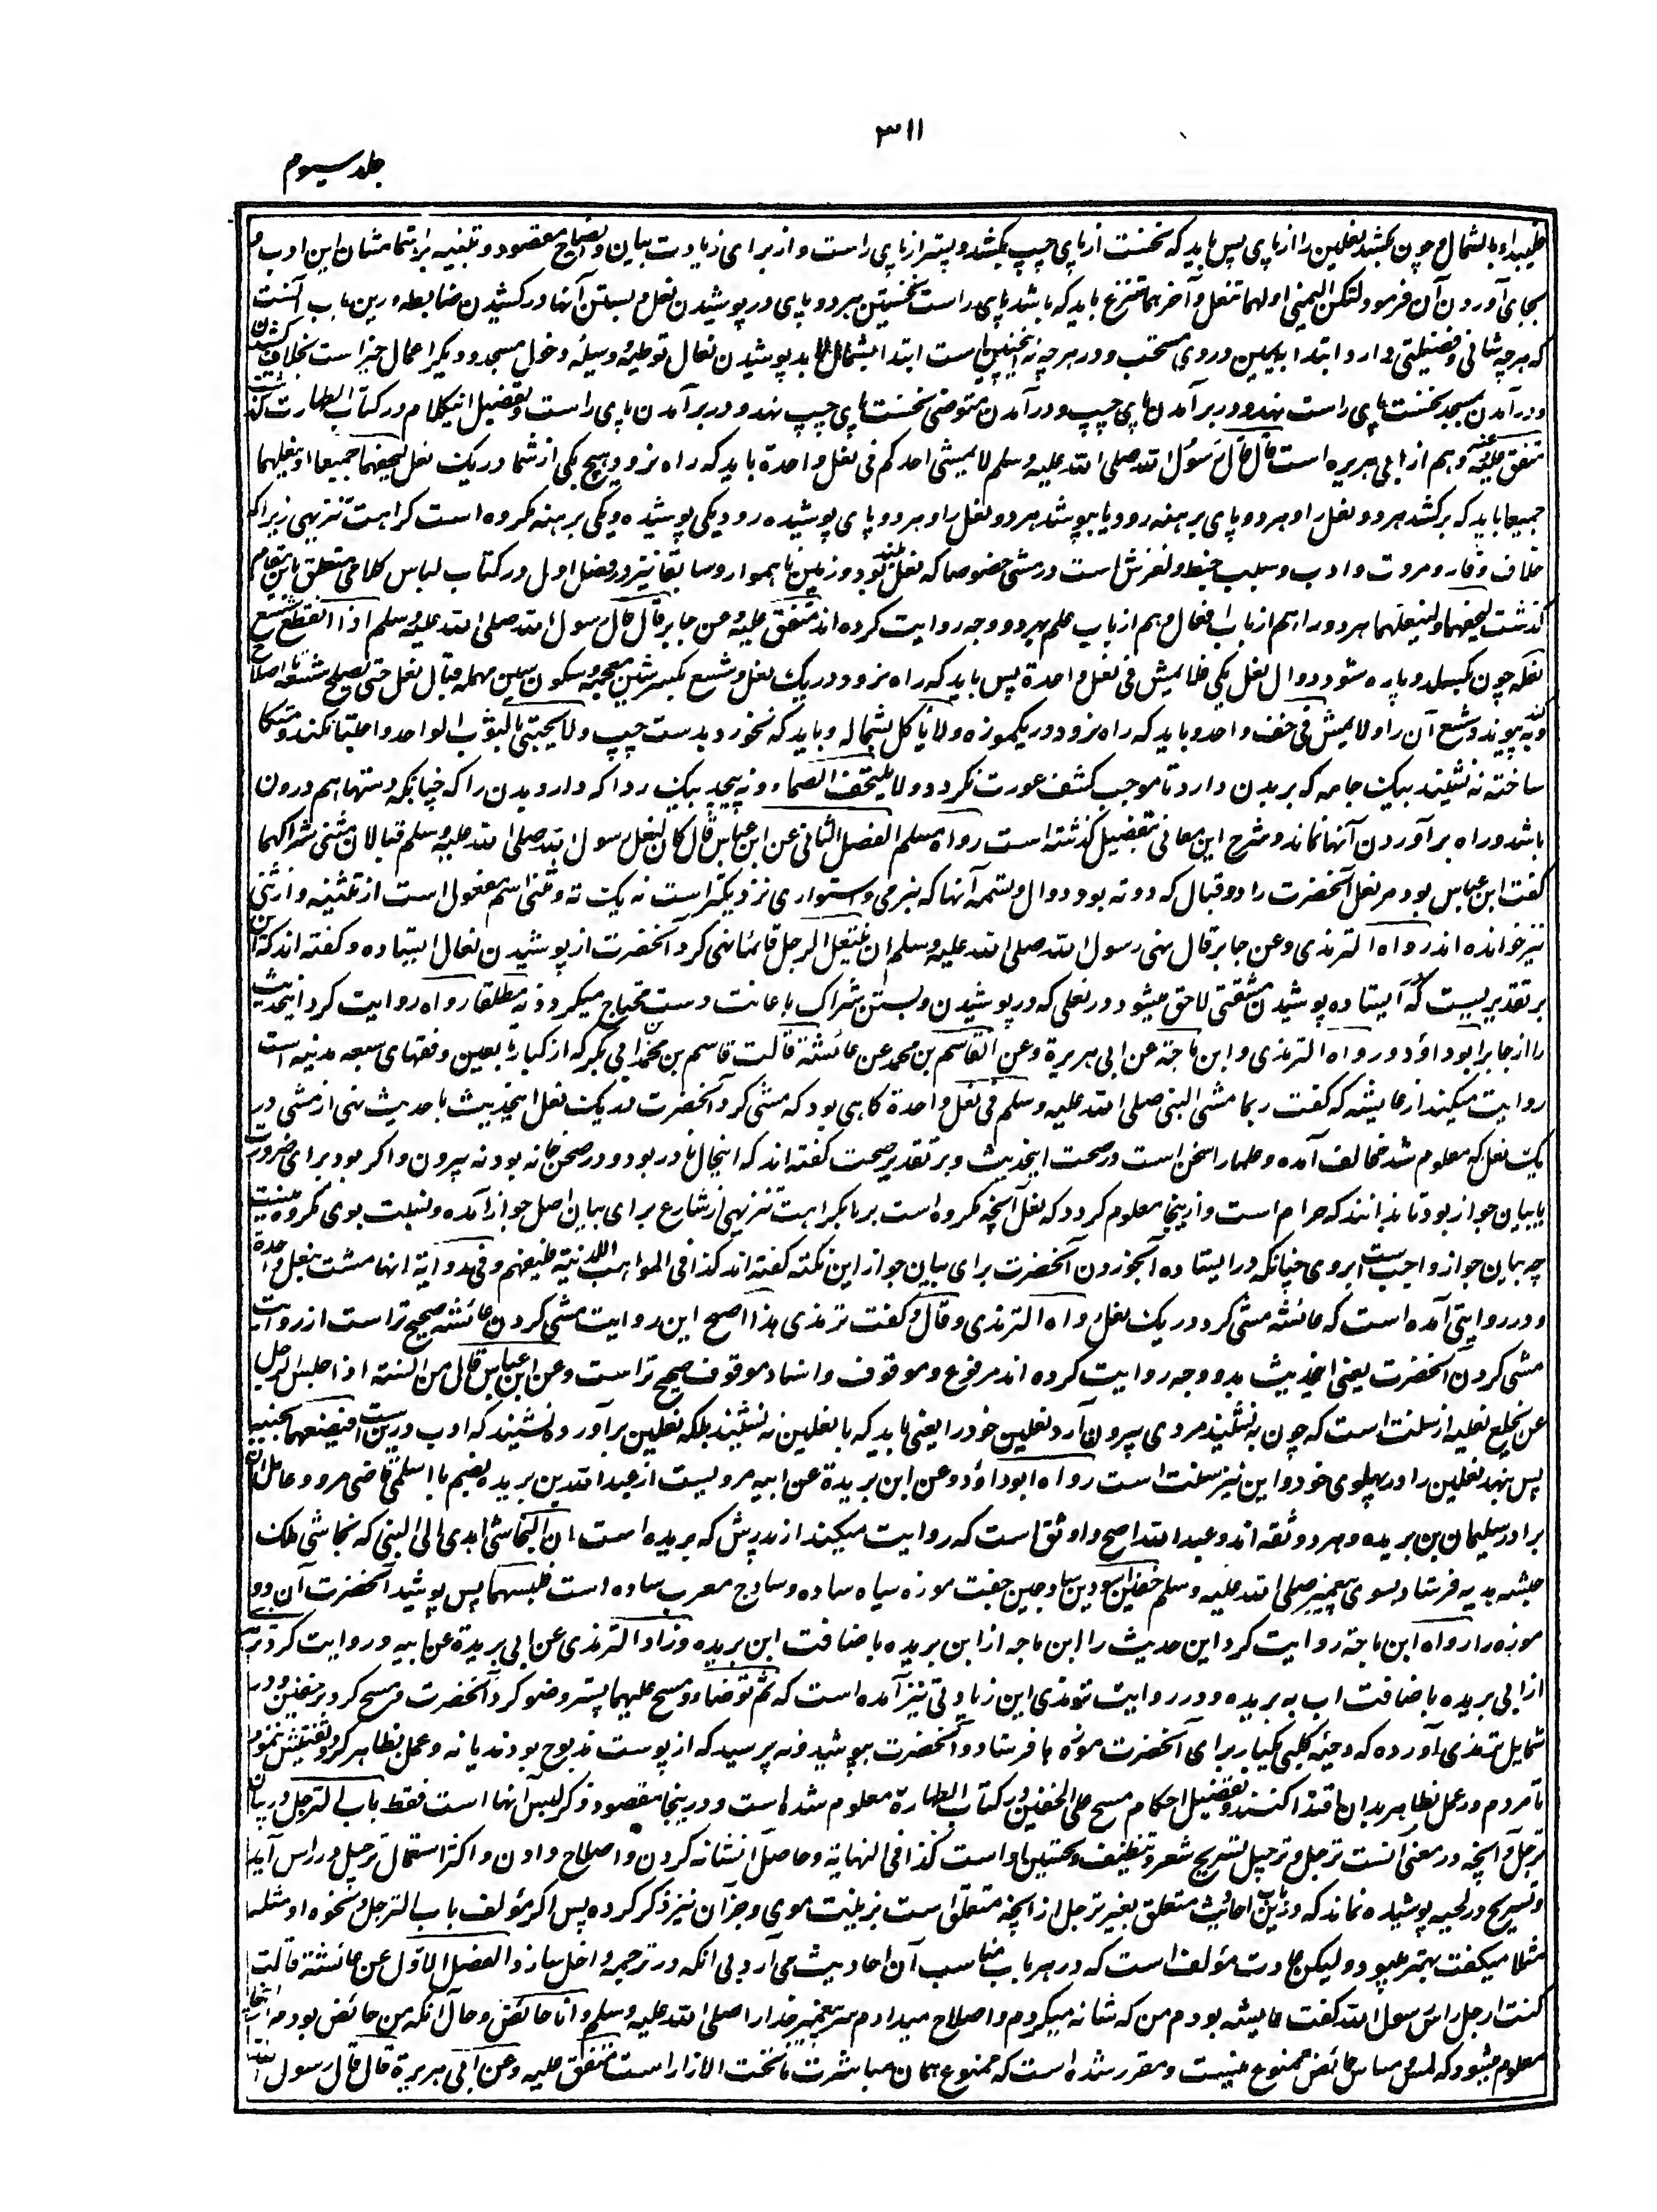 ٣١١
جلد سیوم
فلیبداء بالشمال و چون بکشد نعلین را از پای پس باید که نخست از پای چپ بکشد و پستر از پای راست و از برای زیادت بیان و ایضاح مقصود و تنبیه بر اهتمام شان این ادب و
بجای آوردن آن فرمود و لتکن الیمنی اولهما تنعل و آخرهما تنزع باید که باشد پای راست نخستین هر دو پای در پوشیدن نعل و پستن آنها در کشیدن ضابطه درین باب آنست
که هر چه شانی و فضیلتی دارد ابتدا بیمین در وی مستحب و در هر چه نه اینچنین است ابتدا بشمال لابد پوشیدن نعال توطیه و وسیله دخول مسجد و دیگر اعمال خیر است بخلاف کشیدن
و در آمدن مسجد نخست پای راست نهد و در بر آمدن پای چپ و در آمدن متوضی نخست پای چپ نهد و در بر آمدن پای راست و تفصیل اینکلام در کتاب الطهارت گذشت
متفق علیه و عنه و هم از ابی هریره است قال قال رسول الله صلی الله علیه وسلم لا یمشی احدکم فی نعل واحدة باید که راه نرود هیچ یکی از شما در یک نعل لیحفهما جمیعا او لینعلهما
جمیعا باید که برکشد هر دو نعل را و هر دو پای برهنه رود یا بپوشد هر دو نعل را و هر دو پای پوشیده رود و یکی پوشیده و یکی برهنه مکروه است کراهت تنزیهی زیراکه
خلاف وقار و مروت و ادب و سبب خبط و لغزش است در مشی خصوصا که نعل بلند بود و زمین ناهموار و سابقا نیز در فصل اول در کتاب لباس کلامی متعلق باین مقام
گذشت لیحفهما و لینعلهما هر دو را هم از باب افعال و هم از باب علم بهر دو وجه روایت کرده اند متفق علیه و عن جابر قال قال رسول الله صلی الله علیه وسلم اذا انقطع شسع
نعله چون بگسلد و پاره شود دوال نعل یکی فلا یمش فی نعل واحدة پس باید که راه نرود در یک نعل و شسع بکسر شین معجمه و سکون سین مهمله قبال نعل حتی یصلح شسعه تا اصلاح
کند و بپیوند شسع آن را و لا یمش فی خف واحد و باید که راه نرود در یکموزه و لا یاکل بشماله و باید که نخورد بدست چپ و لا یحتبی بالثوب الواحد و احتبا نکند و متکا
ساخته نه نشیند بیک جامه که بر بدن دارد تا موجب کشف عورت نگردد و لا یلتحف الصماء و نه پیچد بیک ردا که دارد بدن را که چنانکه دستها هم درون
باشد و راه بر آوردن آنها نماند و شرح این معانی بتفصیل گذشته است رواه مسلم الفصل الثانی عن ابن عباس قال کان لنعل رسول الله صلی الله علیه وسلم قبالان مثنی شراکهما
گفت ابن عباس بود مر نعل آنحضرت را دو قبال که دو ته بود دوال و تسمه آنها که بنرمی و استواری نزدیکتر است نه یک ته و مثنی اسم مفعول است از تثنیه و از ثنی
نیز خوانده اند رواه الترمذی و عن جابر قال نهی رسول الله صلی الله علیه وسلم ان ینتعل الرجل قائما نهی کرد آنحضرت از پوشیدن نعال ایستاده و گفته اند که این
بر تقدیریست که آ ایستاده پوشیدن مشقتی لاحق میشود در نعلی که در پوشیدن و بستن شراک باعانت دست محتاج میگردد نه مطلقا رواه روایت کرد اینحدیث
را از جابر ابو داؤد و رواه الترمذی و ابن ماجة عن ابی هریرة و عن القاسم بن محمد عن عائشة قالت قاسم بن محمد بن ابی بکر که از کبار تابعین و فقهای سبعه مدینه است
روایت میکند از عایشه که گفت ربما مشی النبی صلی الله علیه وسلم فی نعل واحدة گاهی بود که مشی کرد آنحضرت در یک نعل اینحدیث با حدیث نهی از مشی در
یک نعل که معلوم شد مخالف آمده و علما را سخن است در صحت اینحدیث و بر تقدیر صحت گفته اند که اینحال نادر بود و در صحن خانه بود نه بیرون و اگر بود برای ضرورت
یا بیان جواز بود تا ندانند که حرام است و ازینجا معلوم گردد که نعل آنچه مکروه است بر ما بکراهت تنزیهی از شارع برای بیان اصل جواز آمده و نسبت بوی مکروه نیست
چه بیان جواز واجب است بروی چنانکه در ایستاده آبخوردن آنحضرت برای بیان جواز این نکته گفته اند کذا فی المواهب اللدنیة فلیفهم و فی روایة انها مشت بنعل واحدة
و در روایتی آمده است که عائشه مشی کرد در یک نعل رواه الترمذی و قال و گفت ترمذی هذا اصح این روایت مشی کردن عائشه صحیح تر است از روایت
مشی کردن آنحضرت یعنی اینحدیث بدو وجه روایت کرده اند مرفوع و موقوف و اسناد موقوف صحیح تر است و عن ابن عباس قال من السنة اذا جلس الرجل
عن یخلع نعلیه از سنت است که چون بنشیند مردی بیرون آرد نعلین خود را یعنی باید که با نعلین نه نشیند بلکه نعلین برآورده نشیند که ادب درین است فیضعهما بجنبه
پس بنهد نعلین را در پهلوی خود و این نیز سنت است رواه ابو داؤد و عن ابن بریدة عن ابیه مرویست از عبدالله بن بریده بضم با اسلمی قاضی مرو و عامل آن
برادر سلیمان بن بریده و هر دو ثقه اند و عبدالله اصح و اوثق است که روایت میکند از پدرش که بریده است ان النجاشی اهدی الی النبی که نجاشی ملک
حبشه هدیه فرستاد بسوی پیغمبر صلی الله علیه وسلم خفین اسودین ساذجین جفت موزه سیاه ساده و ساذج معرب ساده است فلبسهما پس پوشید آنحضرت آن دو
موزه را رواه ابن ماجة روایت کرد این حدیث را ابن ماجه از ابن بریده باضافت ابن بریده و زاد الترمذی عن ابی بریدة عن ابیه و روایت کرد ترمذی
از ابی بریده باضافت اب به بریده و در روایت ترمذی این زیادتی نیز آمده است که ثم توضا و مسح علیهما پستر وضو کرد آنحضرت و مسح کرد بر خفین و در
شمایل ترمذی آورده که دحیه کلبی یکبار برای آنحضرت موزه ها فرستاد و آنحضرت بپوشید و نه پرسید که از پوست مذبوح بودند یا نه و عمل بظاهر کرد و تفتیش ننمود
تا مردم در عمل بظاهر بدان اقتدا کنند و تفصیل احکام مسح علی الخفین در کتاب الطهارة معلوم شده است و درینجا مقصود ذکر لبس آنها است فقط باب الترجل در بیان
ترجل و آنچه در معنی آنست ترجل و ترجیل تسریح شعر و تنظیف و تحسین او است کذا فی النهایة و حاصل آن شانه کردن و اصلاح دادن و اکثر استعمال ترجیل در راس آید
و تسریح در لحیه پوشیده نماند که درین باب احادیث متعلق بغیر ترجل از آنچه متعلق است بزینت موی و جز آن نیز ذکر کرده پس اگر مؤلف باب الترجل و نحوه او مثله
مثلا میگفت بهتر میبود و لیکن عادت مؤلف است که در هر باب مناسب آن احادیث می آرد بی آنکه در ترجمه داخل سازد الفصل الاول عن عائشة قالت
کنت ارجل راس رسول الله گفت عایشه بودم من که شانه میکردم و اصلاح میدادم سر پیغمبر خدا را صلی الله علیه وسلم و انا حائض و حال آنکه من حائض بودم ازینجا
معلوم میشود که لمس و مساس حائض ممنوع نیست و مقرر شده است که ممنوع همان مباشرت ما تحت الازار است متفق علیه و عن ابی هریرة قال قال رسول الله